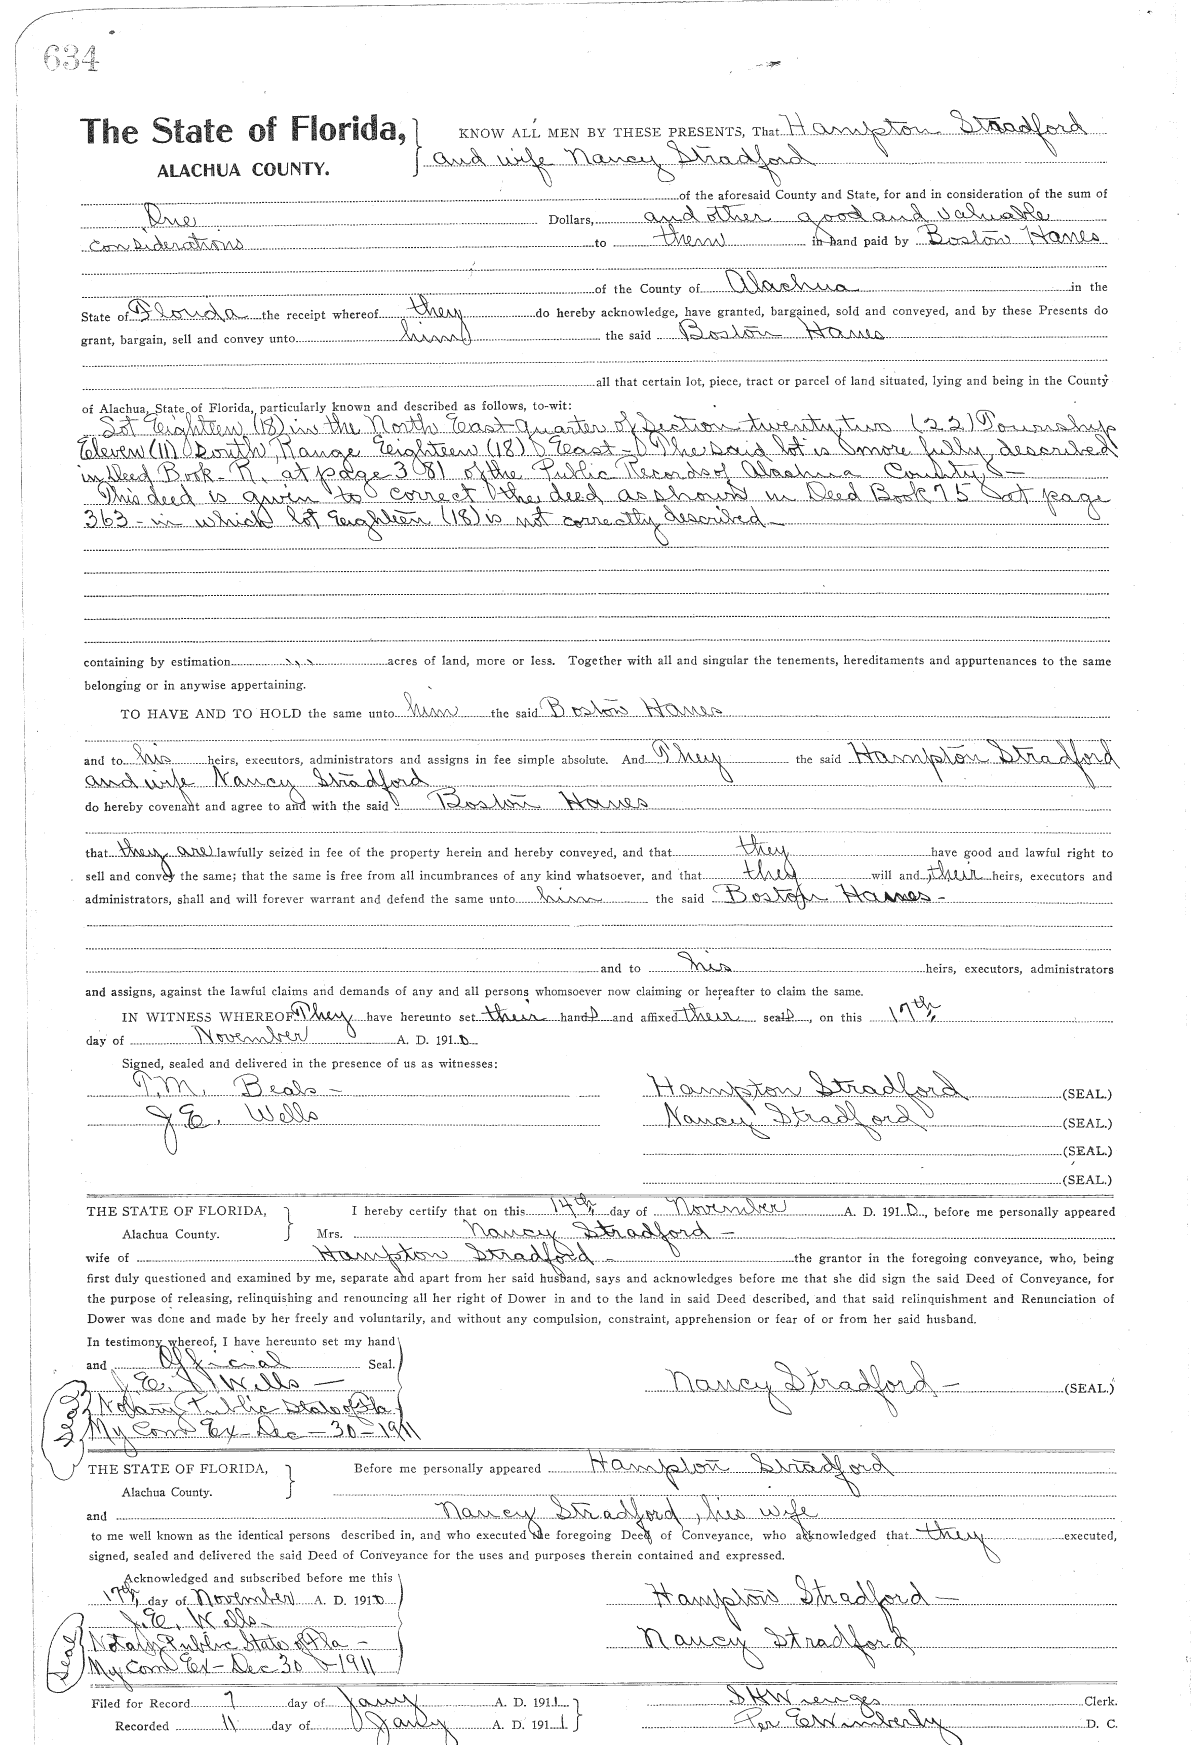 634
The State of Florida, KNOW ALL MEN BY THESE PRESENTS, That Hampton Stradford
ALACHUA COUNTY. and wife Nancy Stradford
of the aforesaid County and State, for and in consideration of the sum of
One Dollars, and other good and valuable
considerations to them in hand paid by Boston Hanes
of the County of Alachua in the
State of Florida the receipt whereof they do hereby acknowledge, have granted, bargained, sold and conveyed, and by these Presents do
grant, bargain, sell and convey unto him the said Boston Hanes
all that certain lot, piece, tract or parcel of land situated, lying and being in the County
of Alachua, State of Florida, particularly known and described as follows, to-wit:
Lot Eighteen (18) in the North East quarter of Section twenty two (22) Township
Eleven (11) South, Range Eighteen (18) East - The said lot is more fully described
in Deed Book - R. at page 381 of the Public Records of Alachua County, -
This deed is given to correct the deed as shown in Deed Book 75 at page
363 - in which lot Eighteen (18) is not correctly described -
containing by estimation acres of land, more or less. Together with all and singular the tenements, hereditaments and appurtenances to the same
belonging or in anywise appertaining.
TO HAVE AND TO HOLD the same unto him the said Boston Hanes
and to his heirs, executors, administrators and assigns in fee simple absolute. And They the said Hampton Stradford
and wife Nancy Stradford
do hereby covenant and agree to and with the said Boston Hanes
that they are lawfully seized in fee of the property herein and hereby conveyed, and that they have good and lawful right to
sell and convey the same; that the same is free from all incumbrances of any kind whatsoever, and that they will and their heirs, executors and
administrators, shall and will forever warrant and defend the same unto him the said Boston Hanes -
and to his heirs, executors, administrators
and assigns, against the lawful claims and demands of any and all persons whomsoever now claiming or hereafter to claim the same.
IN WITNESS WHEREOF They have hereunto set their hands and affixed their seals, on this 17th
day of November A. D. 1910
Signed, sealed and delivered in the presence of us as witnesses:
T.M. Beals - Hampton Stradford (SEAL.)
J.E. Wells Nancy Stradford (SEAL.)
(SEAL.)
(SEAL.)
THE STATE OF FLORIDA, I hereby certify that on this 14th day of November A. D. 1910, before me personally appeared
Alachua County. Mrs. Nancy Stradford -
wife of Hampton Stradford - the grantor in the foregoing conveyance, who, being
first duly questioned and examined by me, separate and apart from her said husband, says and acknowledges before me that she did sign the said Deed of Conveyance, for
the purpose of releasing, relinquishing and renouncing all her right of Dower in and to the land in said Deed described, and that said relinquishment and Renunciation of
Dower was done and made by her freely and voluntarily, and without any compulsion, constraint, apprehension or fear of or from her said husband.
In testimony whereof, I have hereunto set my hand
and Official Seal.
J.E. Wells - Nancy Stradford - (SEAL.)
Seal Notary Public State of Fla
My Com Ex - Dec - 30 - 1911
THE STATE OF FLORIDA, Before me personally appeared Hampton Stradford
Alachua County.
and Nancy Stradford, his wife
to me well known as the identical persons described in, and who executed the foregoing Deed of Conveyance, who acknowledged that they executed,
signed, sealed and delivered the said Deed of Conveyance for the uses and purposes therein contained and expressed.
Acknowledged and subscribed before me this
17th day of November A. D. 1910 Hampton Stradford -
J.E. Wells -
Seal Notary Public State of Fla - Nancy Stradford
My Com Ex - Dec 30 - 1911
Filed for Record 7 day of Jany A. D. 1911 S H Wienges Clerk.
Recorded 11 day of Jany A. D. 1911 Per E Wimberly D. C.